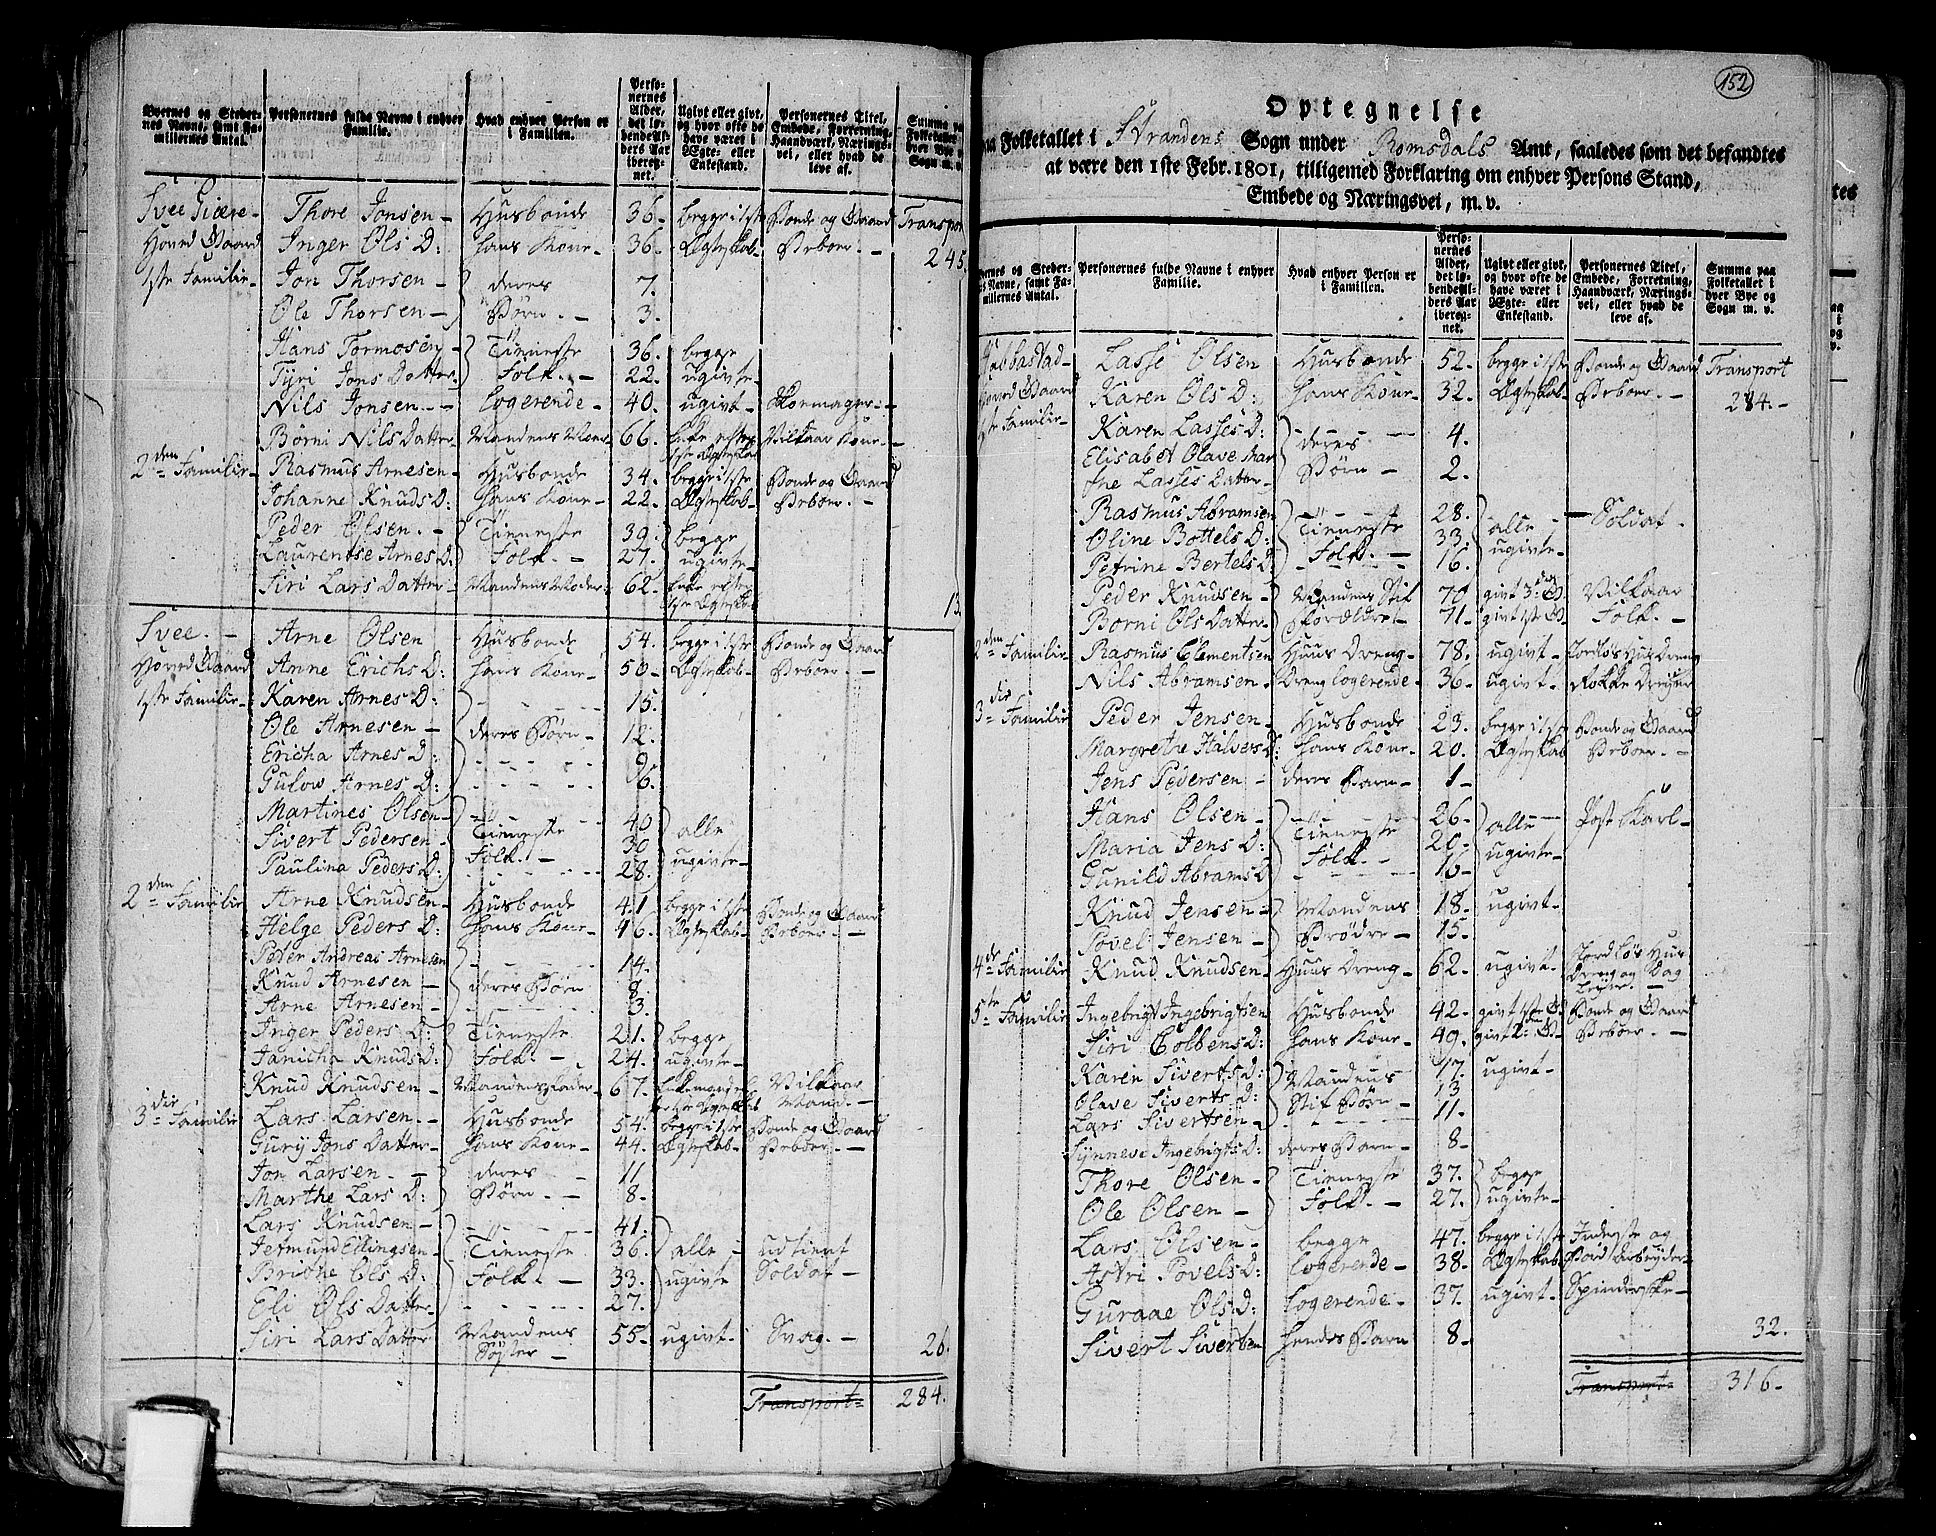 Byernes og Steder-
nes Navne, samt Fa-
miliernes Antal.
Personernes fulde Navne i enhver
Familie.
Hvad enhver Person er
i Familien.
Perso-
nernes
Alder,
det lø-
bende Al-
ders Aar
ibereg-
net.
Ugivt eller givt,
og hvor ofte de
have været i
Ægte- eller
Enkestand.
Personernes Titel,
Embede, Forretning,
Haandværk, Nærings-
vei, eller hvad de
leve af.
Summa paa
Folketallet i
hver Bye og
Sogn m. v.
Svee Giære- Thore Jonsen - Husbonde 36. begge i 1ste Bonde og Gaard Transport
Hoved Gaard Inger Ols D: hans Kone - 36. Ægteskab- Beboer. - 245.
1ste Familie- Jon Thorsen - deres 7.
Ole Thorsen - Børn. - 3.
Hans Tormosen - Tieneste 36. begge
Tyri Jons Datter- Folk. - 22. ugivte-
Nils Jonsen - - Logerende - 40. ugivt- Skomager-
Børni Nils Datter- Mandens Moder 66. Enke efter Vilkaar Kone-
1ste Ægteskab
2den Familie- Rasmus Arnesen - Husbonde 34. begge i 1ste Bonde og Gaard
Johanne Knuds D: hans Kone - 22. Ægteskab- Beboer. -
Peder Olsen. - Tieneste 39. begge
Laurentse Arnes D: Folk. - 27. ugivte-
Siri Lars Datter- Mandens Moder- 62. Enke efter
1ste Ægteskab 13.
Svee. - Arne Olsen Husbonde 54. begge i 1ste Bonde og Gaard
Hoved Gaard Anne Erichs D: hans Kone - 50. Ægteskab- Beboer. -
1ste Familie- Karen Arnes D: 15.
Ole Arnesen - deres Børn - 12.
Ericha Arnes D: 9.
Gulow Arnes D: 6.
Martines Olsen - 40
Sivert Pedersen - Tieneste 30 alle
Paulina Peders D: Folk. - 28. ugivte-
2den Familie Arne Knudsen - Husbonde 41 begge i 1ste Bonde og Gaard
Helge Peders D: hans Kone - 46. Ægteskab- Beboer. -
Peder Andreas Arnesen 14.
Knud Arnesen - deres Børn 8.
Arne Arnesen - 3.
Inger Peders D: Tieneste 21. begge
Janicha Knuds D: Folk. - 24. ugivte-
Knud Knudsen - Mandens Fader- 67. Enkemand Vilkaar
Mand. -
3die Familie Lars Larsen. - Husbonde 54. begge i 1ste Bonde og Gaard
Gury Jons Datter- hans Kone - 44. Ægteskab- Beboer. -
Jon Larsen. - deres 11
Marthe Lars D: Børn. - 8.
Lars Knudsen - 41.
Jermund Ellingsen - Tieneste 36. alle - Udtient
Brithe Ols D: Folk. - 33. ugivte Soldat -
Eli Ols Datter- 27.
Siri Lars Datter Mandens 55. ugivt. Svag. -
Søster - 26.
Transport= 284.
152
Optegnelse
paa Folketallet i Strandens Sogn under Romsdals Amt, saaledes som det befandtes
at være den 1ste Febr. 1801, tilligemed Forklaring om enhver Persons Stand,
Embede og Næringsvei, m. v.
Byernes og Steder-
nes Navne, samt Fa-
miliernes Antal.
Personernes fulde Navne i enhver
Familie.
Hvad enhver Person er
i Familien.
Perso-
nernes
Alder,
det lø-
bende Al-
ders Aar
ibereg-
net.
Ugivt eller givt,
og hvor ofte de
have været i
Ægte- eller
Enkestand.
Personernes Titel,
Embede, Forretning,
Haandværk, Nærings-
vei, eller hvad de
leve af.
Summa paa
Folketallet i
hver Bye og
Sogn m. v.
Habbastad- Lasse Olsen Husbonde 52. begge i 1ste Bonde og Gaard Transport
Hoved Gaard Karen Ols D: hans Kone - 32. Ægteskab- Beboer. - 284.-
1ste Familie- Karen Lasses D: deres 4.
Elisabet Olave Mar Børn - 2.
the Lasses Datter-
Rasmus Abramsen 28. alle - Soldat.
Oline Bottels D: Tieneste 33. ugivte-
Petrine Bertels D: Folk. - 16.
Peder Knudsen - Mandens Stif 70 givt 3die G Vilkaar
Borni Ols Datter- Forældre- 71. givt 1ste G Folk. -
2den Familie Rasmus Clementsen Huus Dreng- 78. ugivt. Jordløs Hus Dreng
Nils Abramsen - Dreng Logerende- 36. ugivt- Rokke Dreyer
3die Familie Peder Jensen - Husbonde 23. begge i 1ste Bonde og Gaard
Margrethe Halvers D: hans Kone- 20. Ægteskab Beboer. -
Jens Pedersen - deres Barn- 1-
Hans Olsen - 26. alle - Post Karl-
Maria Jens D: Tieneste 20. ugivte-
Gunild Abrams D Folk. - 16-
Knud Jensen - Mandens 18. ugivt-
Povel Jensen - Brødre - 15.
4de Familie Knud Knudsen - Huus Dreng- 62. ugivt- Jordløs Hus
Dreng og Dag
Leyer. -
5te Familie Ingebrigt Ingebrigtsen Husbonde 42. givt 1ste G Bonde og Gaard
Siri Colbens D: hans Kone- 49. givt 2: G- Beboer. -
Karen Siverts D: Mandens 17. ugivt-
Olave Siverts D: Stif Børn - 13
Lars Sivertsen - 11.
Synneve Ingebrigts D: deres Barn- 8-
Thore Olsen - Tieneste 37. begge
Ole Olsen - Folk. - 27. ugivte-
Lars Olsen - begge 47. begge i 1ste Inderste og
Astri Povels D: Logerende - 38. Ægteskab Jord Arbeyder-
Guraae Ols D: Logerende- 37. ugivt- Spinderske-
Sivert Siversen hendes Barn 8- 32.
Transport= 316-